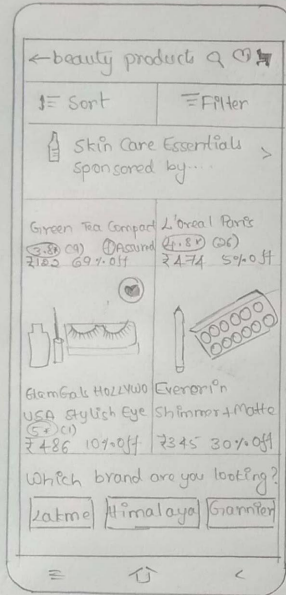 ←beauty products
Sort
Filter
Skin Care Essentials >
Sponsored by....
Green Tea Compact
3.8★ (9) Assured
₹102 69% off
L'oreal Paris
4.8★ (26)
₹474 5% off
GlamGals HOLLYWO
USA Stylish Eye
5★ (1)
₹486 10% off
Everorin
Shimmer+Matte
₹345 30% off
Which brand are you looking?
Lakme Himalaya Garnier